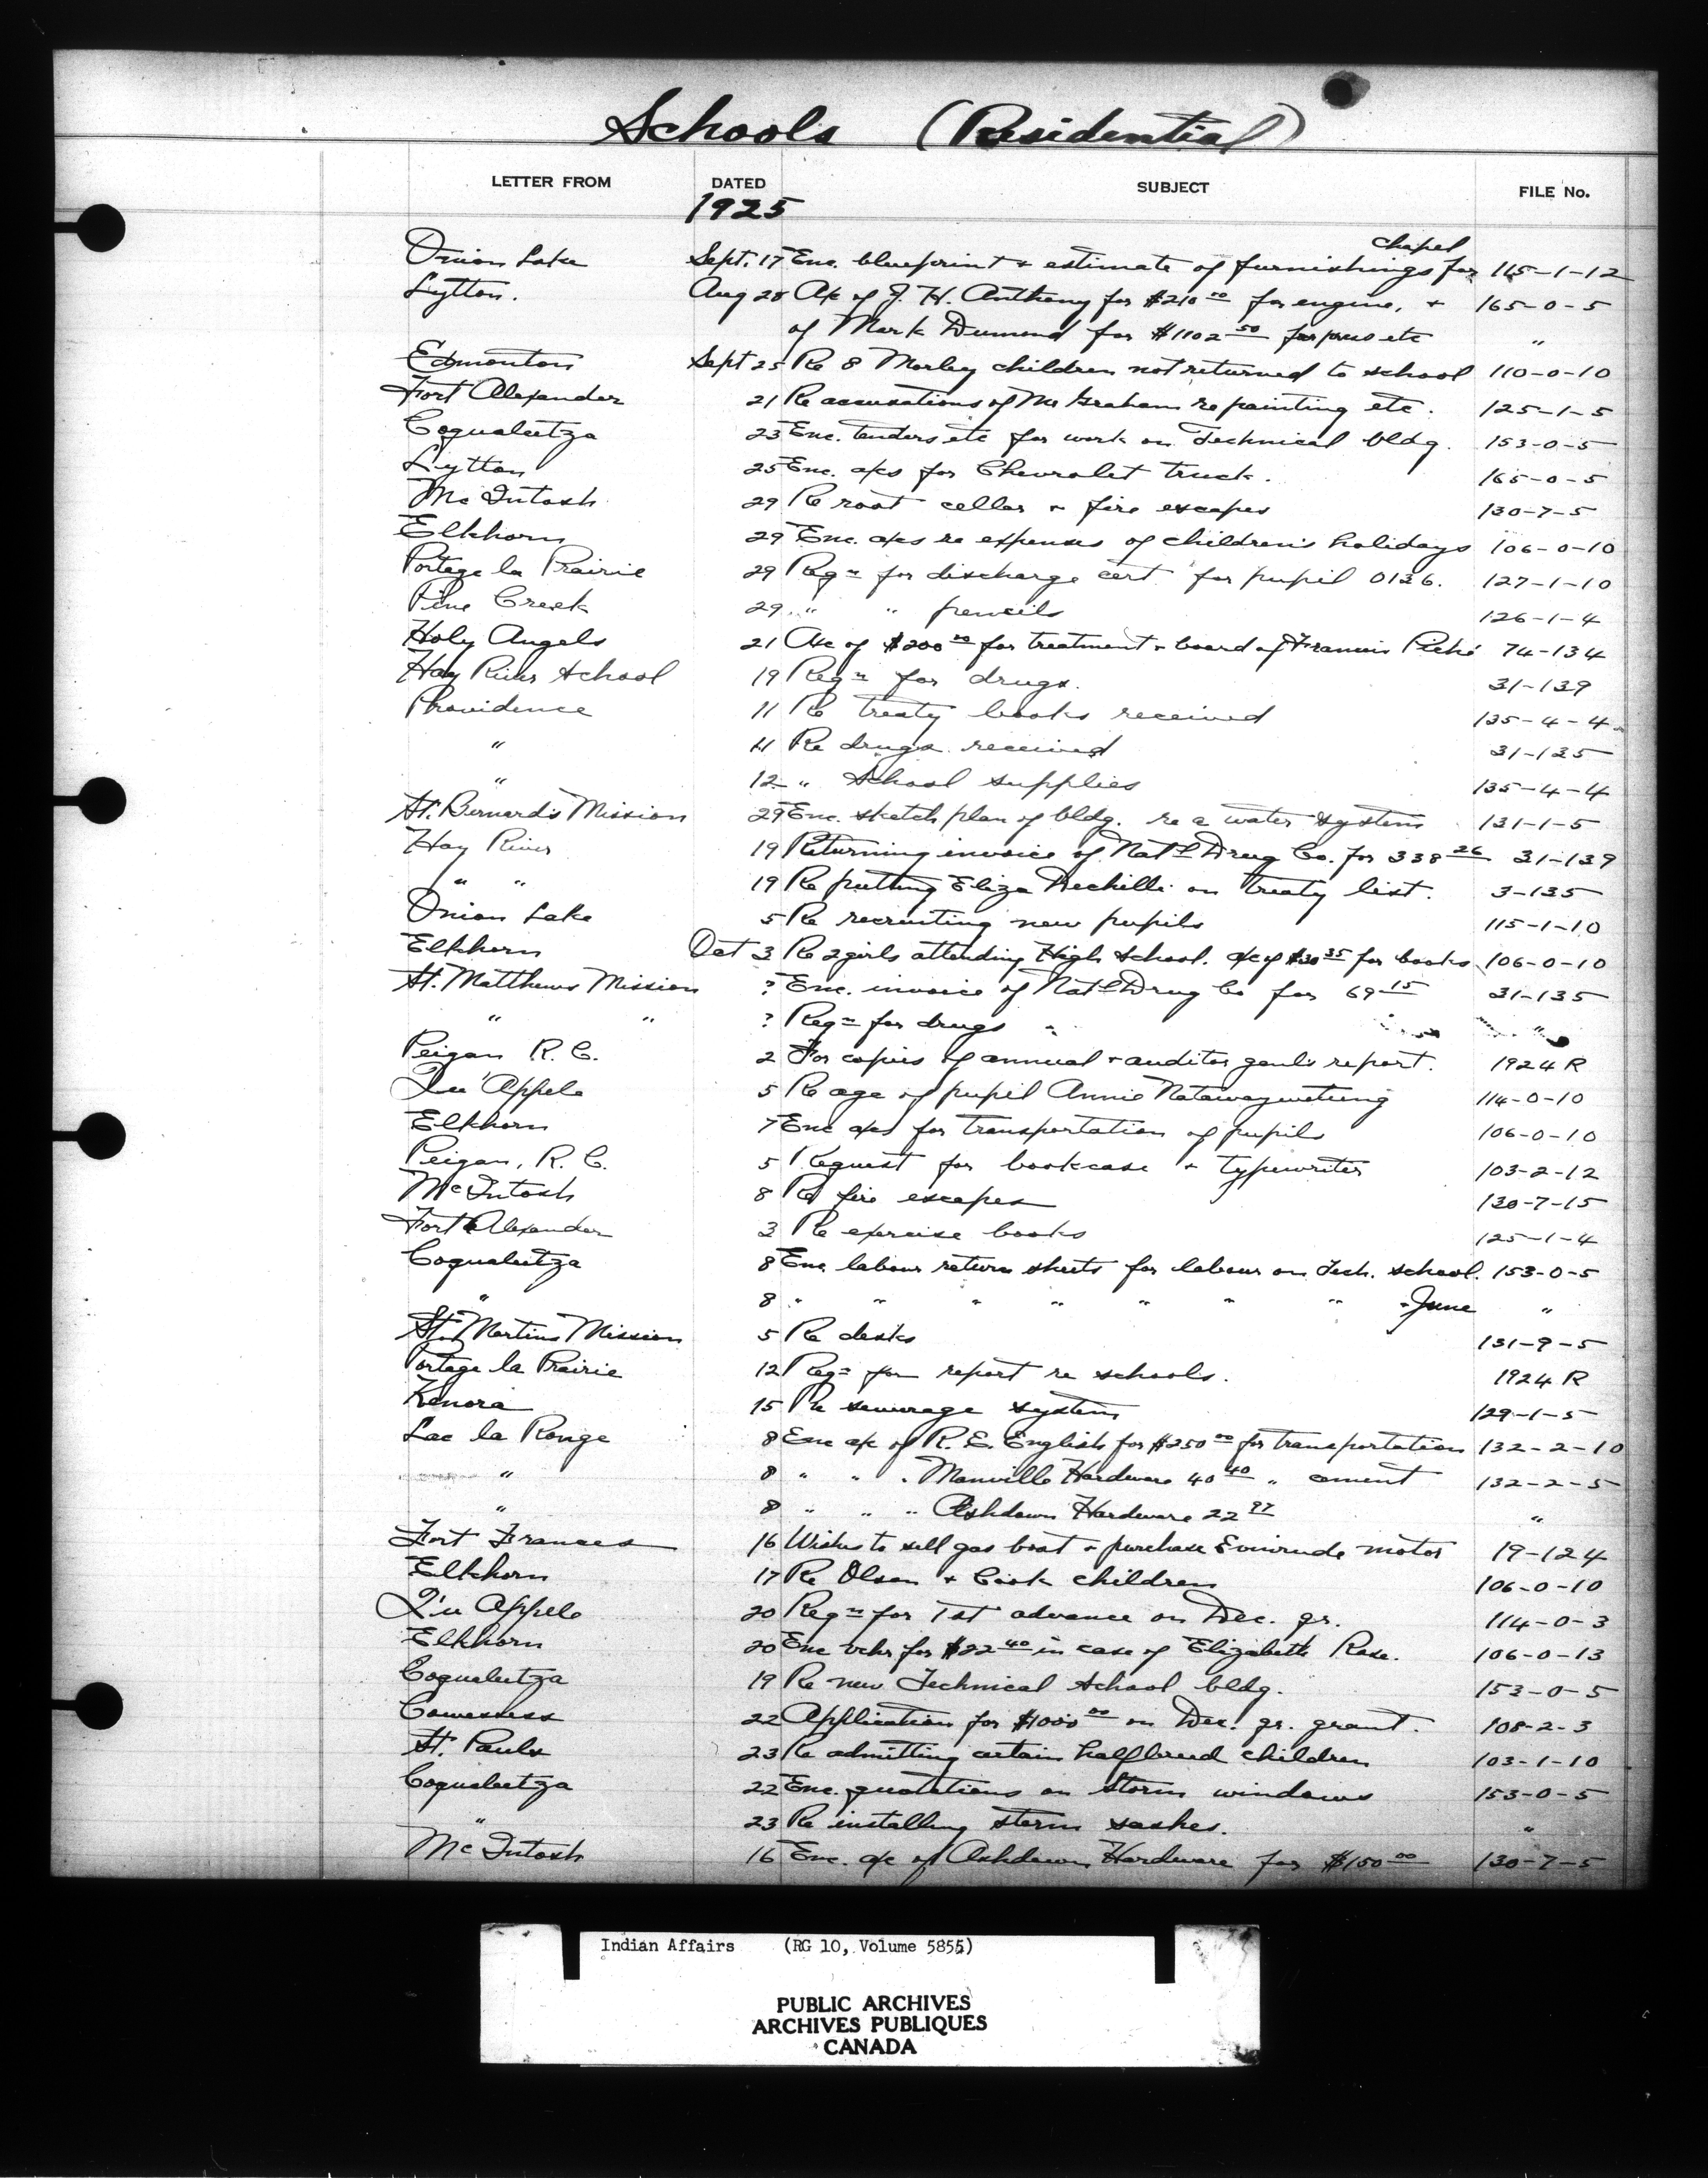 Schools (Residential)
LETTER FROM DATED SUBJECT FILE No.
1925
chapel
Onion Lake Sept. 17 Enc. blueprint + estimate of furnishings for 115-1-12
Lytton. Aug 28 A/c of J. H. Anthony for $210 00 for engine, + 165-0-5
of Mark Dumond for $1102 50 for etc "
Edmonton Sept 25 Re 8 Morley children not returned to school 110-0-10
Fort Alexander 21 Re accusations of Mr Graham re painting etc. 125-1-5
Coqualeetza 23 Enc. tenders etc for work on Technical bldg. 153-0-5
Lytton 25 Enc. a/cs for Chevrolet truck. 165-0-5
McIntosh 29 Re root cellar + fire escapes 130-7-5
Elkhorn 29 Enc. a/cs re expenses of children's holidays 106-0-10
Portage la Prairie 29 Reqn for discharge cert for pupil 0136. 127-1-10
Pine Creek 29 " " pencils 126-1-4
Holy Angels 21 A/c of $200 00 for treatment + board of Francis Piché 74-134
Hay River School 19 Reqn for drugs. 31-139
Providence 11 Re treaty books received 135-4-4
" 11 Re drugs received 31-135
" 12 " School supplies 135-4-4
St. Bernard's Mission 29 Enc. sketch plan of bldg. re a water system 131-1-5
Hay River 19 Returning invoice of Natl Drug Co. for 338 26 31-139
" " 19 Re putting Eliza on treaty list. 3-135
Onion Lake 5 Re recruiting new pupils 115-1-10
Elkhorn Oct 3 Re 2 girls attending High School. a/c of $30 35 for books 106-0-10
St. Matthews Mission ? Enc. invoice of Natl Drug Co for 69 15 31-135
" " ? Reqn for drugs "
Peigan R. C. 2 For copies of annual + auditor genl's report. 1924 R
Qu'Appele 5 Re age of pupil Annie 114-0-10
Elkhorn 7 Enc a/cs for transportation of pupils 106-0-10
Peigan, R. C. 5 Request for bookcase + typewriter 103-2-12
McIntosh 8 Re fire escapes 130-7-15
Fort Alexander 3 Re exercise books 125-1-4
Coqualeetza 8 Enc labour return sheets for labour on Tech. school. 153-0-5
" 8 " " " " " " " - June "
St. Martins Mission 5 Re desks 131-9-5
Portage la Prairie 12 Reqn for report re schools. 1924 R
Kenora 15 Re sewerage system 129-1-5
Lac la Ronge 8 Enc a/c of R. E. English for $250 00 for transportation 132-2-10
" 8 " " " Manville Hardware 40 40 " cement 132-2-5
" 8 " " " Ashdown Hardware 22 97 "
Fort Frances 16 Wishes to sell gas boat + purchase Evinrude motor 19-124
Elkhorn 17 Re Olson + Cook children 106-0-10
Qu Appele 20 Reqn for 1st advance on Dec. qr. 114-0-3
Elkhorn 20 Enc vchr for $22 40 in case of Elizabeth Rose. 106-0-13
Coqualeetza 19 Re new Technical School bldg. 153-0-5
Cowessess 22 Application for $1000 00 on Dec. qr. grant. 108-2-3
St. Pauls 23 Re admitting certain halfbreed children 103-1-10
Coqualeetza 22 Enc. quotations on storm windows 153-0-5
" 23 Re installing storm sashes. "
McIntosh 16 Enc. a/c of Ashdown Hardware for $150 00 130-7-5
Indian Affairs (RG 10, Volume 5855)
PUBLIC ARCHIVES
ARCHIVES PUBLIQUES
CANADA